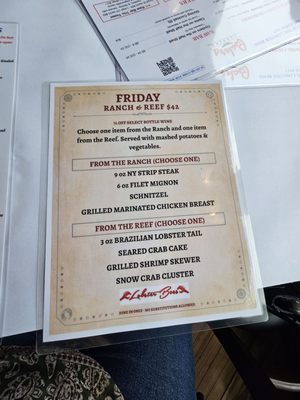 FRIDAY
RANCH & REEF $42
½ OFF SELECT BOTTLE WINE
Choose one item from the Ranch and one item
from the Reef. Served with mashed potatoes &
vegetables.
FROM THE RANCH (CHOOSE ONE)
9 OZ NY STRIP STEAK
6 OZ FILET MIGNON
SCHNITZEL
GRILLED MARINATED CHICKEN BREAST
FROM THE REEF (CHOOSE ONE)
3 OZ BRAZILIAN LOBSTER TAIL
SEARED CRAB CAKE
GRILLED SHRIMP SKEWER
SNOW CRAB CLUSTER
DINE IN ONLY - NO SUBSTITUTIONS ALLOWED